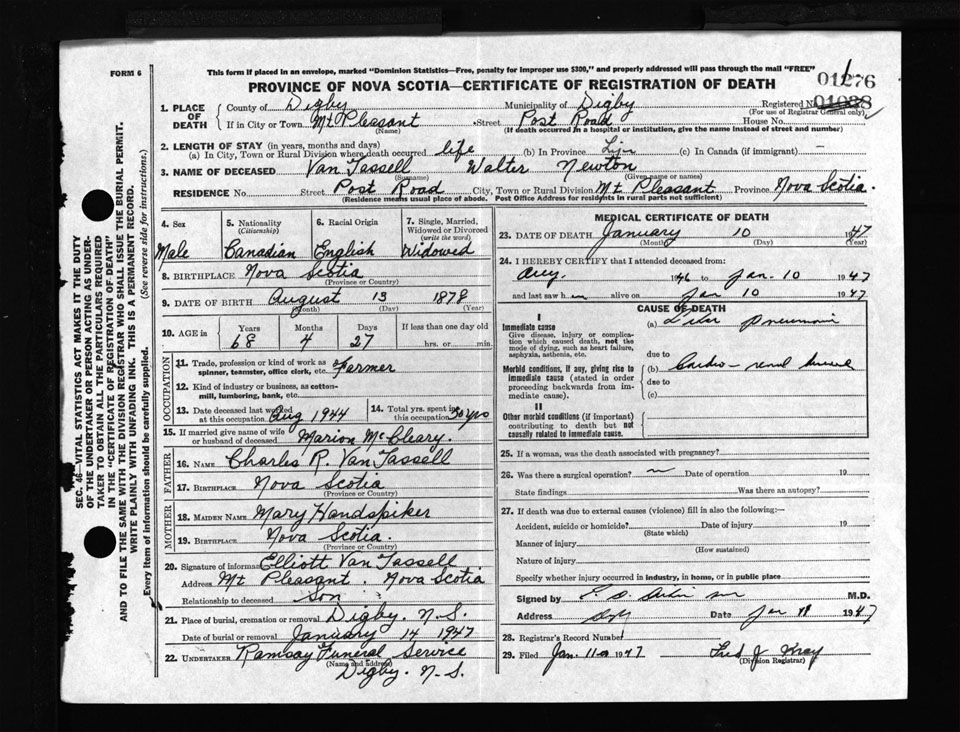 FORM 6
This form if placed in an envelope, marked "Dominion Statistics—Free, penalty for improper use $300," and properly addressed will pass through the mail "FREE"
PROVINCE OF NOVA SCOTIA—CERTIFICATE OF REGISTRATION OF DEATH
01276
1. PLACE OF DEATH
County of Digby Municipality of Digby Registered No. 01088
(For use of Registrar General only)
If in City or Town Mt Pleasant Street Post Road House No.
(Name) (If death occurred in a hospital or institution, give the name instead of street and number)
2. LENGTH OF STAY (in years, months and days)
(a) In City, Town or Rural Division where death occurred life (b) In Province Life (c) In Canada (if immigrant) —
3. NAME OF DECEASED Van Tassell Walter Newton
(Surname) (Given name or names)
RESIDENCE No. Street Post Road City, Town or Rural Division Mt Pleasant Province Nova Scotia.
(Residence means usual place of abode. Post Office Address for residents in rural parts not sufficient)
4. Sex Male
5. Nationality (Citizenship) Canadian
6. Racial Origin English
7. Single, Married, Widowed or Divorced (write the word) Widowed
8. BIRTHPLACE Nova Scotia
(Province or Country)
9. DATE OF BIRTH August 13 1878
(Month) (Day) (Year)
10. AGE in Years Months Days If less than one day old
68 4 27 hrs. or min.
OCCUPATION
11. Trade, profession or kind of work as spinner, teamster, office clerk, etc. Farmer
12. Kind of industry or business, as cotton-mill, lumbering, bank, etc.
13. Date deceased last worked at this occupation Aug 1944
14. Total yrs. spent in this occupation 50 yrs
15. If married give name of wife or husband of deceased Marion McCleary.
FATHER
16. NAME Charles R. Van Tassell
17. BIRTHPLACE Nova Scotia
(Province or Country)
MOTHER
18. MAIDEN NAME Mary Handspiker
19. BIRTHPLACE Nova Scotia.
(Province or Country)
20. Signature of informant Elliott Van Tassell
Address Mt Pleasant. Nova Scotia
Relationship to deceased Son
21. Place of burial, cremation or removal Digby. N.S.
Date of burial or removal January 14 1947
22. UNDERTAKER Ramsay Funeral Service
(Name and address)
Digby. N.S.
MEDICAL CERTIFICATE OF DEATH
23. DATE OF DEATH January 10 1947
(Month) (Day) (Year)
24. I HEREBY CERTIFY that I attended deceased from:
Aug. 1946 to Jan. 10 1947
and last saw him alive on Jan 10 1947
CAUSE OF DEATH
I
Immediate cause
Give disease, injury or complication which caused death, not the mode of dying, such as heart failure, asphyxia, asthenia, etc.
(a) Pneumonia
due to
Morbid conditions, if any, giving rise to immediate cause (stated in order proceeding backwards from immediate cause).
(b) Cardio-renal
due to
(c)
II
Other morbid conditions (if important) contributing to death but not causally related to immediate cause.
25. If a woman, was the death associated with pregnancy?
26. Was there a surgical operation? Date of operation 19
State findings Was there an autopsy?
27. If death was due to external causes (violence) fill in also the following:—
Accident, suicide or homicide? Date of injury 19
(State which)
Manner of injury
(How sustained)
Nature of injury
Specify whether injury occurred in industry, in home, or in public place
Signed by M.D.
Address Date Jan 11 1947
28. Registrar's Record Number
29. Filed Jan. 11 1947 Fred J
(Division Registrar)
SEC. 46—VITAL STATISTICS ACT MAKES IT THE DUTY
OF THE UNDERTAKER OR PERSON ACTING AS UNDER-
TAKER TO OBTAIN ALL THE PARTICULARS REQUIRED
IN THE "CERTIFICATE OF REGISTRATION OF DEATH"
AND TO FILE THE SAME WITH THE DIVISION REGISTRAR WHO SHALL ISSUE THE BURIAL PERMIT.
WRITE PLAINLY WITH UNFADING INK. THIS IS A PERMANENT RECORD.
Every item of information should be carefully supplied. (See reverse side for instructions.)